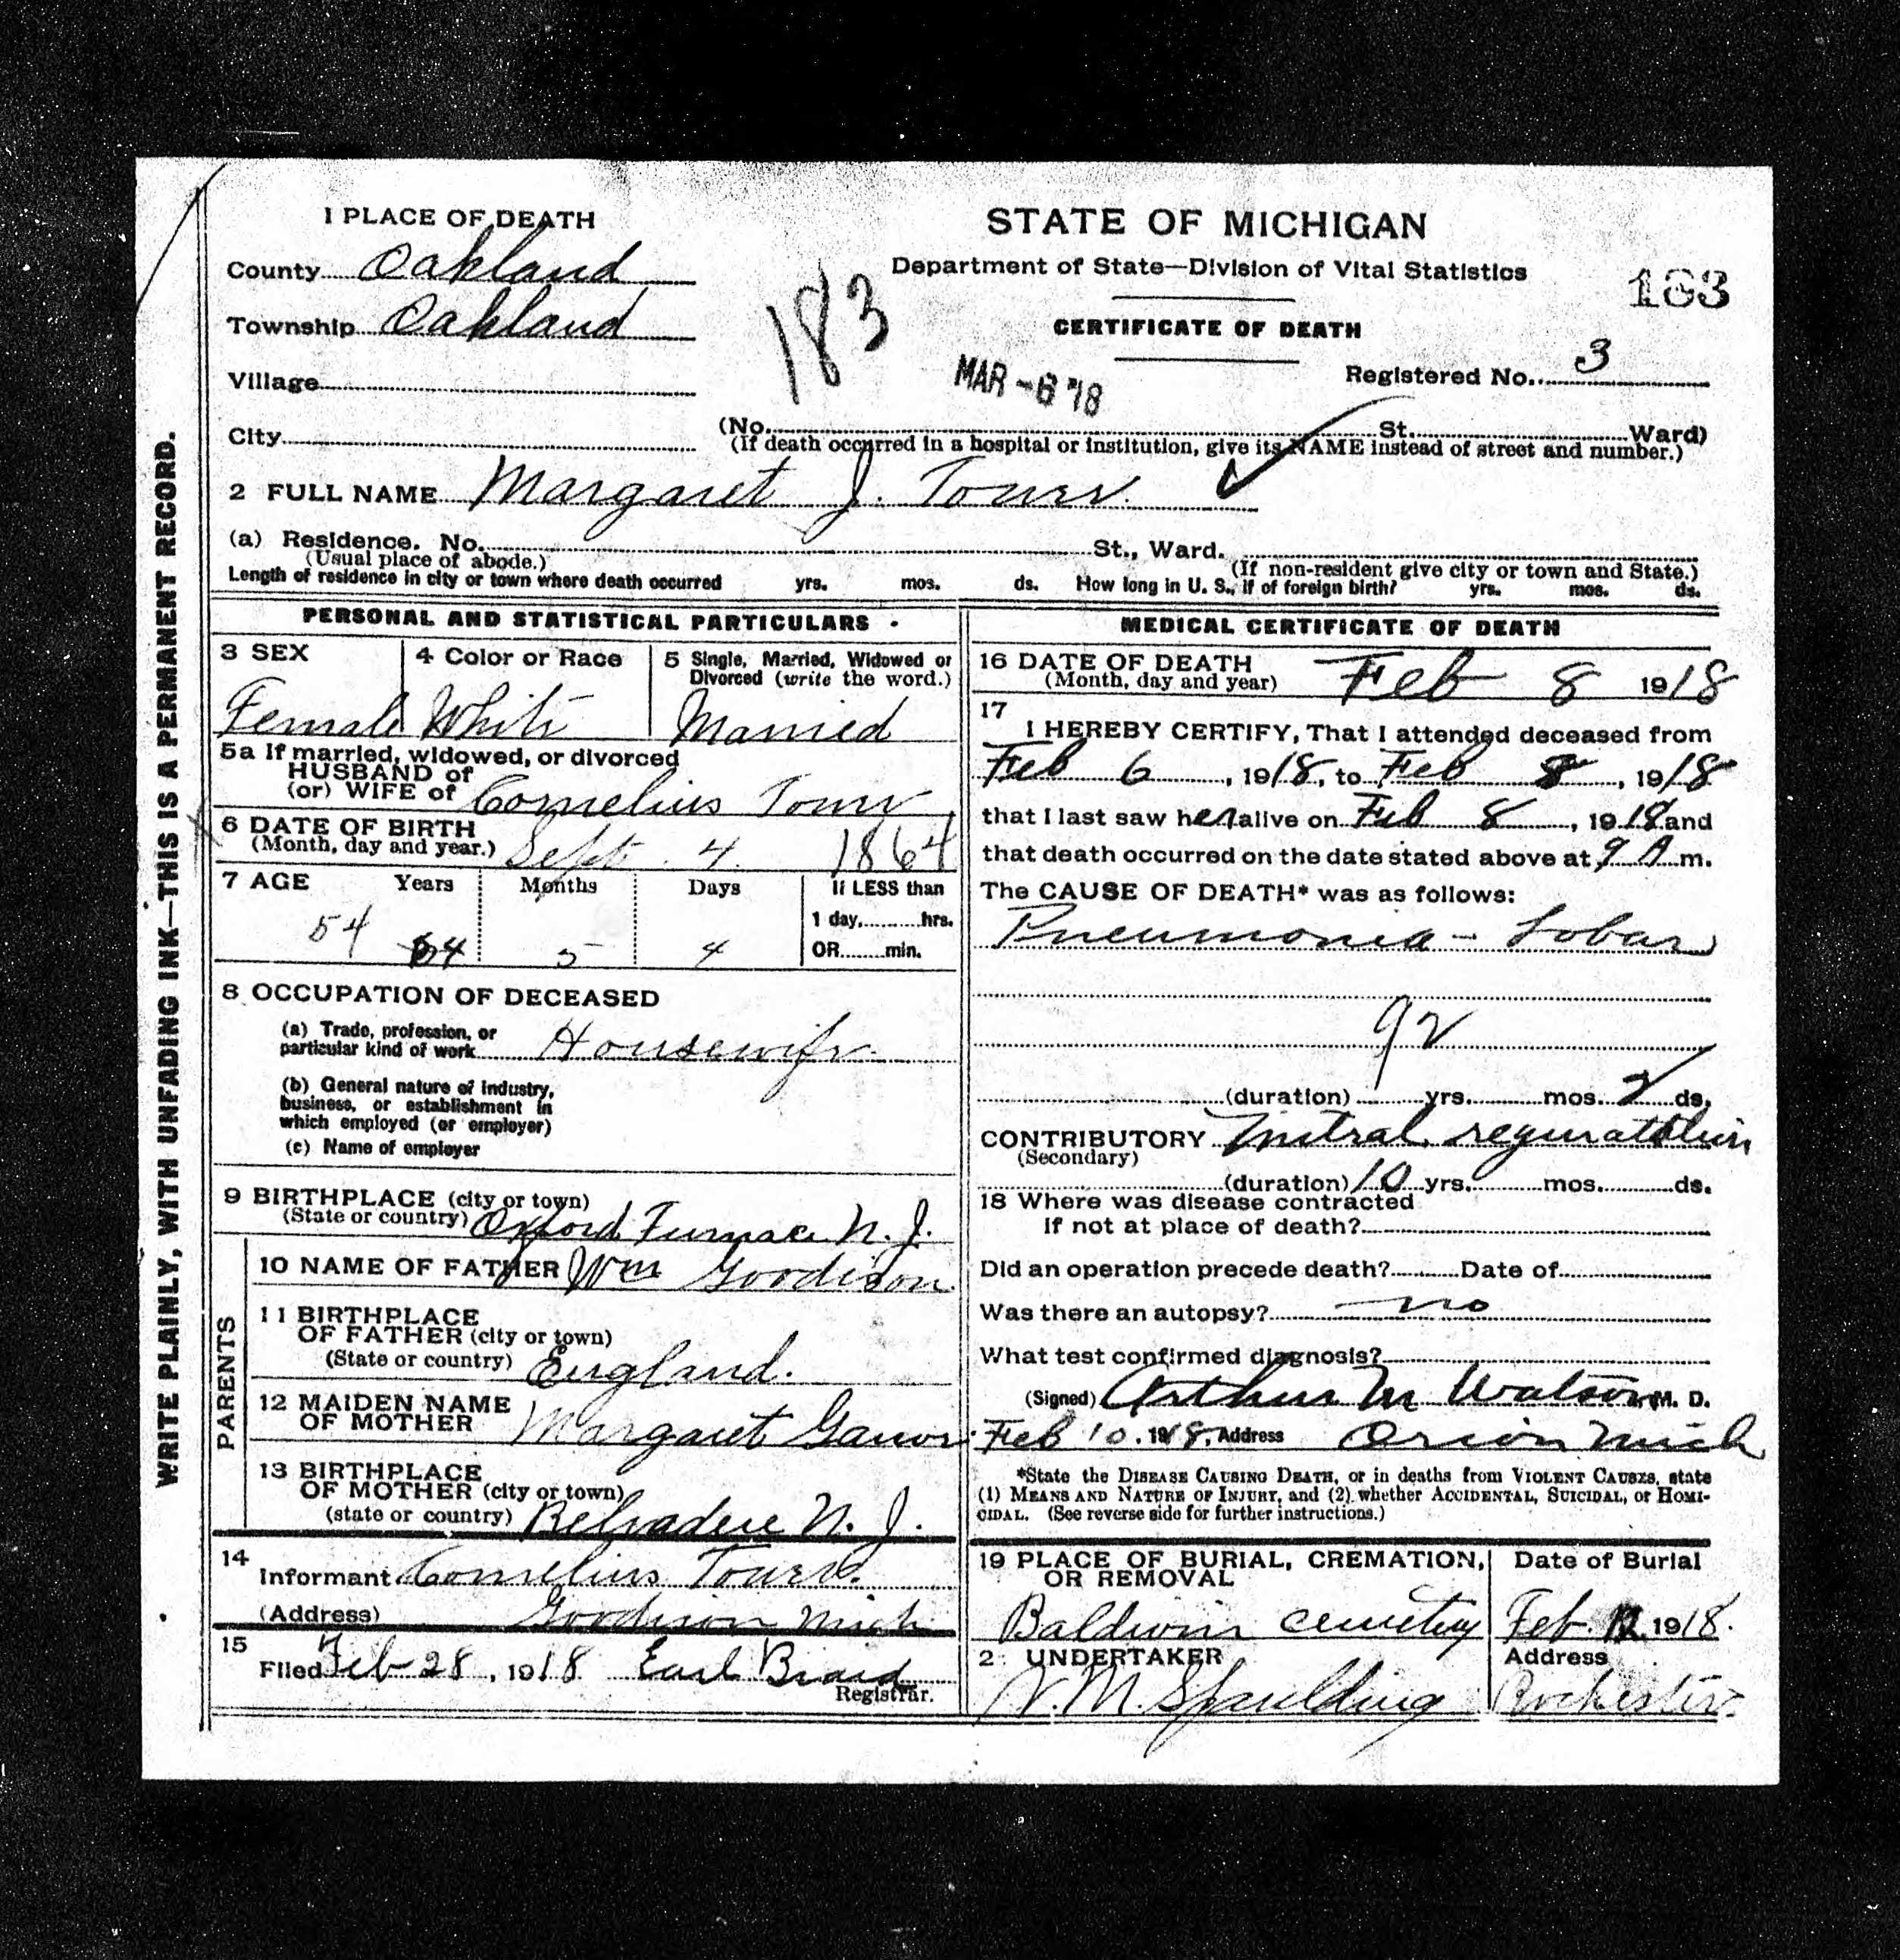 1 PLACE OF DEATH
County Oakland
Township Oakland
Village
City
STATE OF MICHIGAN
Department of State—Division of Vital Statistics
183
183
CERTIFICATE OF DEATH
MAR -6 '18
Registered No. 3
(No. St. Ward)
(If death occurred in a hospital or institution, give its NAME instead of street and number.)
2 FULL NAME Margaret J. Tower
(a) Residence. No. St., Ward.
(Usual place of abode.) (If non-resident give city or town and State.)
Length of residence in city or town where death occurred yrs. mos. ds. How long in U. S., if of foreign birth? yrs. mos. ds.
WRITE PLAINLY, WITH UNFADING INK—THIS IS A PERMANENT RECORD.
PERSONAL AND STATISTICAL PARTICULARS
3 SEX
Female
4 Color or Race
White
5 Single, Married, Widowed or
Divorced (write the word.)
Married
5a If married, widowed, or divorced
HUSBAND of
(or) WIFE of Cornelius Tower
6 DATE OF BIRTH
(Month, day and year.) Sept. 4. 1864
7 AGE Years Months Days If LESS than
1 day, hrs.
OR min.
54
54 5 4
8 OCCUPATION OF DECEASED
(a) Trade, profession, or
particular kind of work Housewife
(b) General nature of industry,
business, or establishment in
which employed (or employer)
(c) Name of employer
9 BIRTHPLACE (city or town)
(State or country) Oxford Furnace N. J.
PARENTS
10 NAME OF FATHER Wm Goodison
11 BIRTHPLACE
OF FATHER (city or town)
(State or country) England.
12 MAIDEN NAME
OF MOTHER Margaret
13 BIRTHPLACE
OF MOTHER (city or town)
(state or country) Belvadere N. J.
14
Informant Cornelius Tower
(Address) Goodison Mich
15
Filed Feb 28, 1918 Earl
Registrar.
MEDICAL CERTIFICATE OF DEATH
16 DATE OF DEATH
(Month, day and year) Feb 8 1918
17
I HEREBY CERTIFY, That I attended deceased from
Feb 6, 1918, to Feb 8, 1918
that I last saw her alive on Feb 8, 1918 and
that death occurred on the date stated above at 9 A m.
The CAUSE OF DEATH* was as follows:
Pneumonia - Lobar
92
(duration) yrs. mos. 2 ds.
CONTRIBUTORY Mitral
(Secondary)
(duration) 10 yrs. mos. ds.
18 Where was disease contracted
if not at place of death?
Did an operation precede death? Date of
Was there an autopsy? no
What test confirmed diagnosis?
(Signed) Arthur M Watson M. D.
Feb 10. 1918, Address Orion Mich
*State the DISEASE CAUSING DEATH, or in deaths from VIOLENT CAUSES, state
(1) MEANS AND NATURE OF INJURY, and (2) whether ACCIDENTAL, SUICIDAL, or HOMI-
CIDAL. (See reverse side for further instructions.)
19 PLACE OF BURIAL, CREMATION,
OR REMOVAL
Baldwin cemetery
Date of Burial
Feb. 12 1918.
2 UNDERTAKER
V. M. Spaulding
Address
Rochester